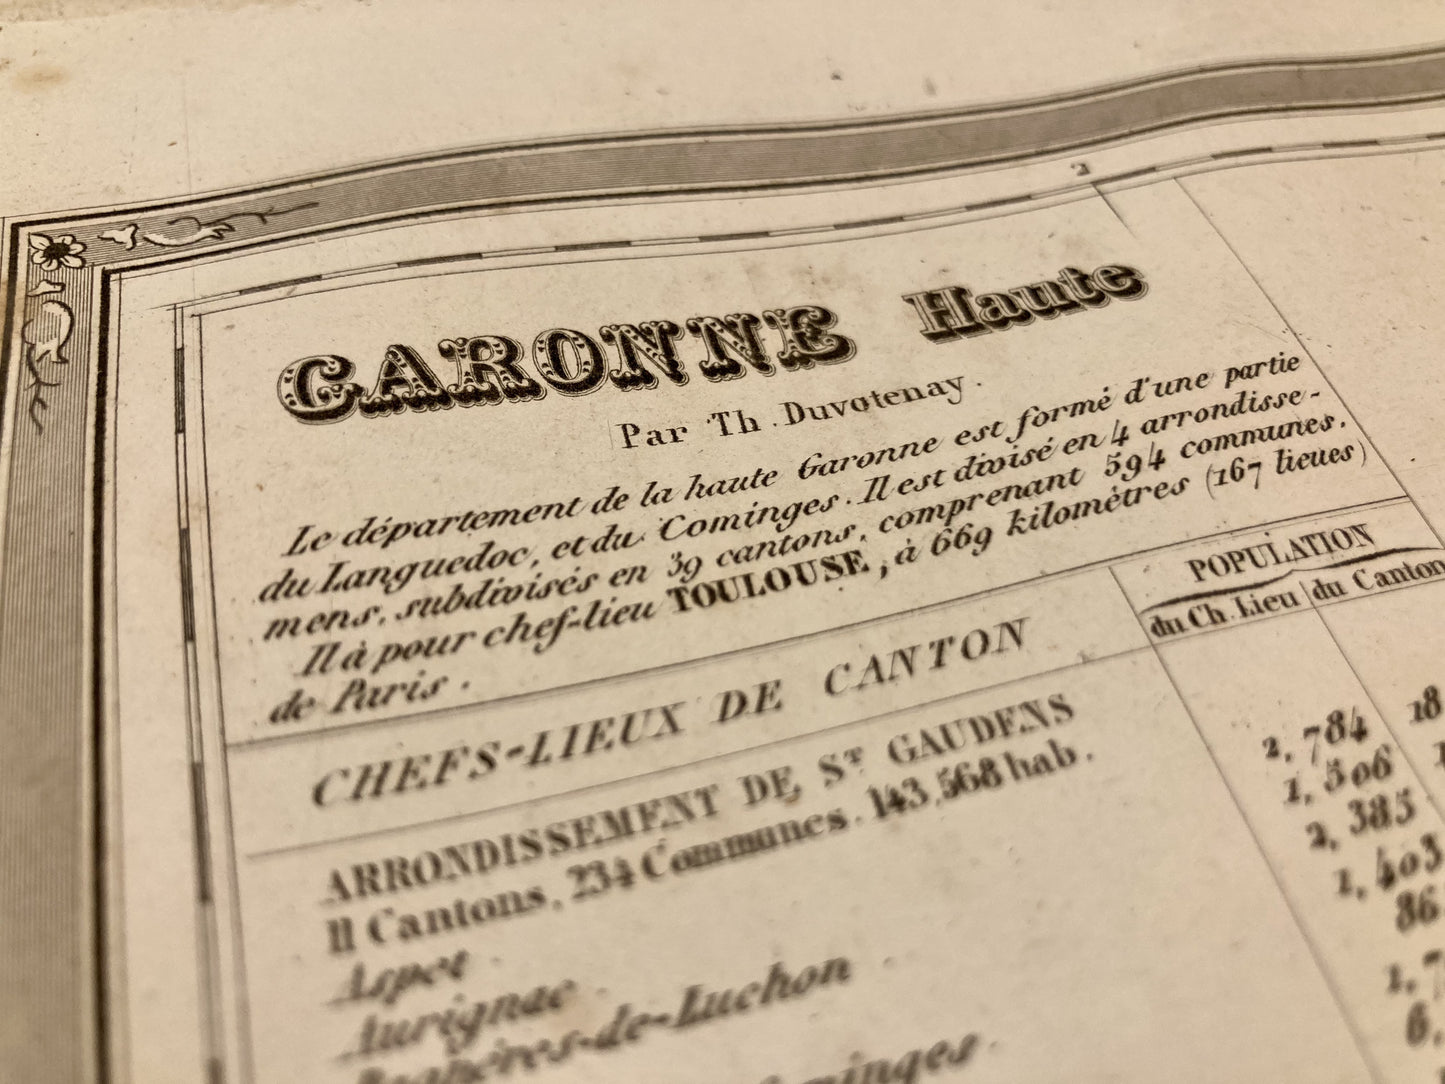 2
GARONNE Haute
Par Th. Duvotenay.
Le département de la haute Garonne est formé d'une partie
du Languedoc, et du Cominges. Il est divisé en 4 arrondisse-
mens, subdivisés en 39 cantons, comprenant 594 communes.
Il à pour chef-lieu TOULOUSE, à 669 kilomètres (167 lieues)
de Paris.
CHEFS-LIEUX DE CANTON
POPULATION
du Ch. Lieu du Canton
ARRONDISSEMENT DE ST GAUDENS
11 Cantons, 234 Communes. 143,568 hab.
Aspet
Aurignac
Bagnères-de-Luchon
2,784 18
1,506
2,385
1,403
86
1,7
6,